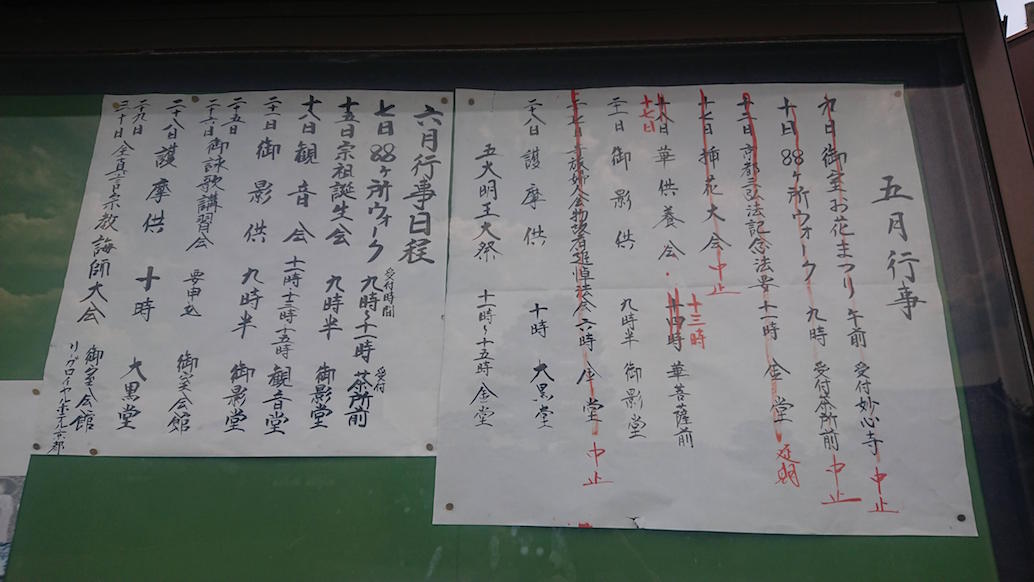 五月行事
九日 御室お花まつり 午前 受付妙心寺 中止
十日 88ヶ所ウォーク 九時 受付茶所前 中止
十二日 京都三弘法記念法要 十一時 金堂 延期
十七日 挿花大会 中止
十八日 華供養会 十四時 華菩薩前
十七日 十三時
二十一日 御影供 九時半 御影堂
会物故者追悼法会 六時 金堂 中止
二十八日 護摩供 十時 大黒堂
五大明王大祭 十一時〜十五時 金堂
六月行事日程
七日 88ヶ所ウォーク 受付時間 九時〜十一時 受付 茶所前
十五日 宗祖誕生会 九時半 御影堂
十八日 観音会 十一時 十三時 十五時 観音堂
二十一日 御影供 九時半 御影堂
二十五日
二十六日 御詠歌講習会 要申込 御室会館
二十八日 護摩供 十時 大黒堂
二十九日 御室会館
三十日 全真言宗教誨師大会 リーガロイヤルホテル京都